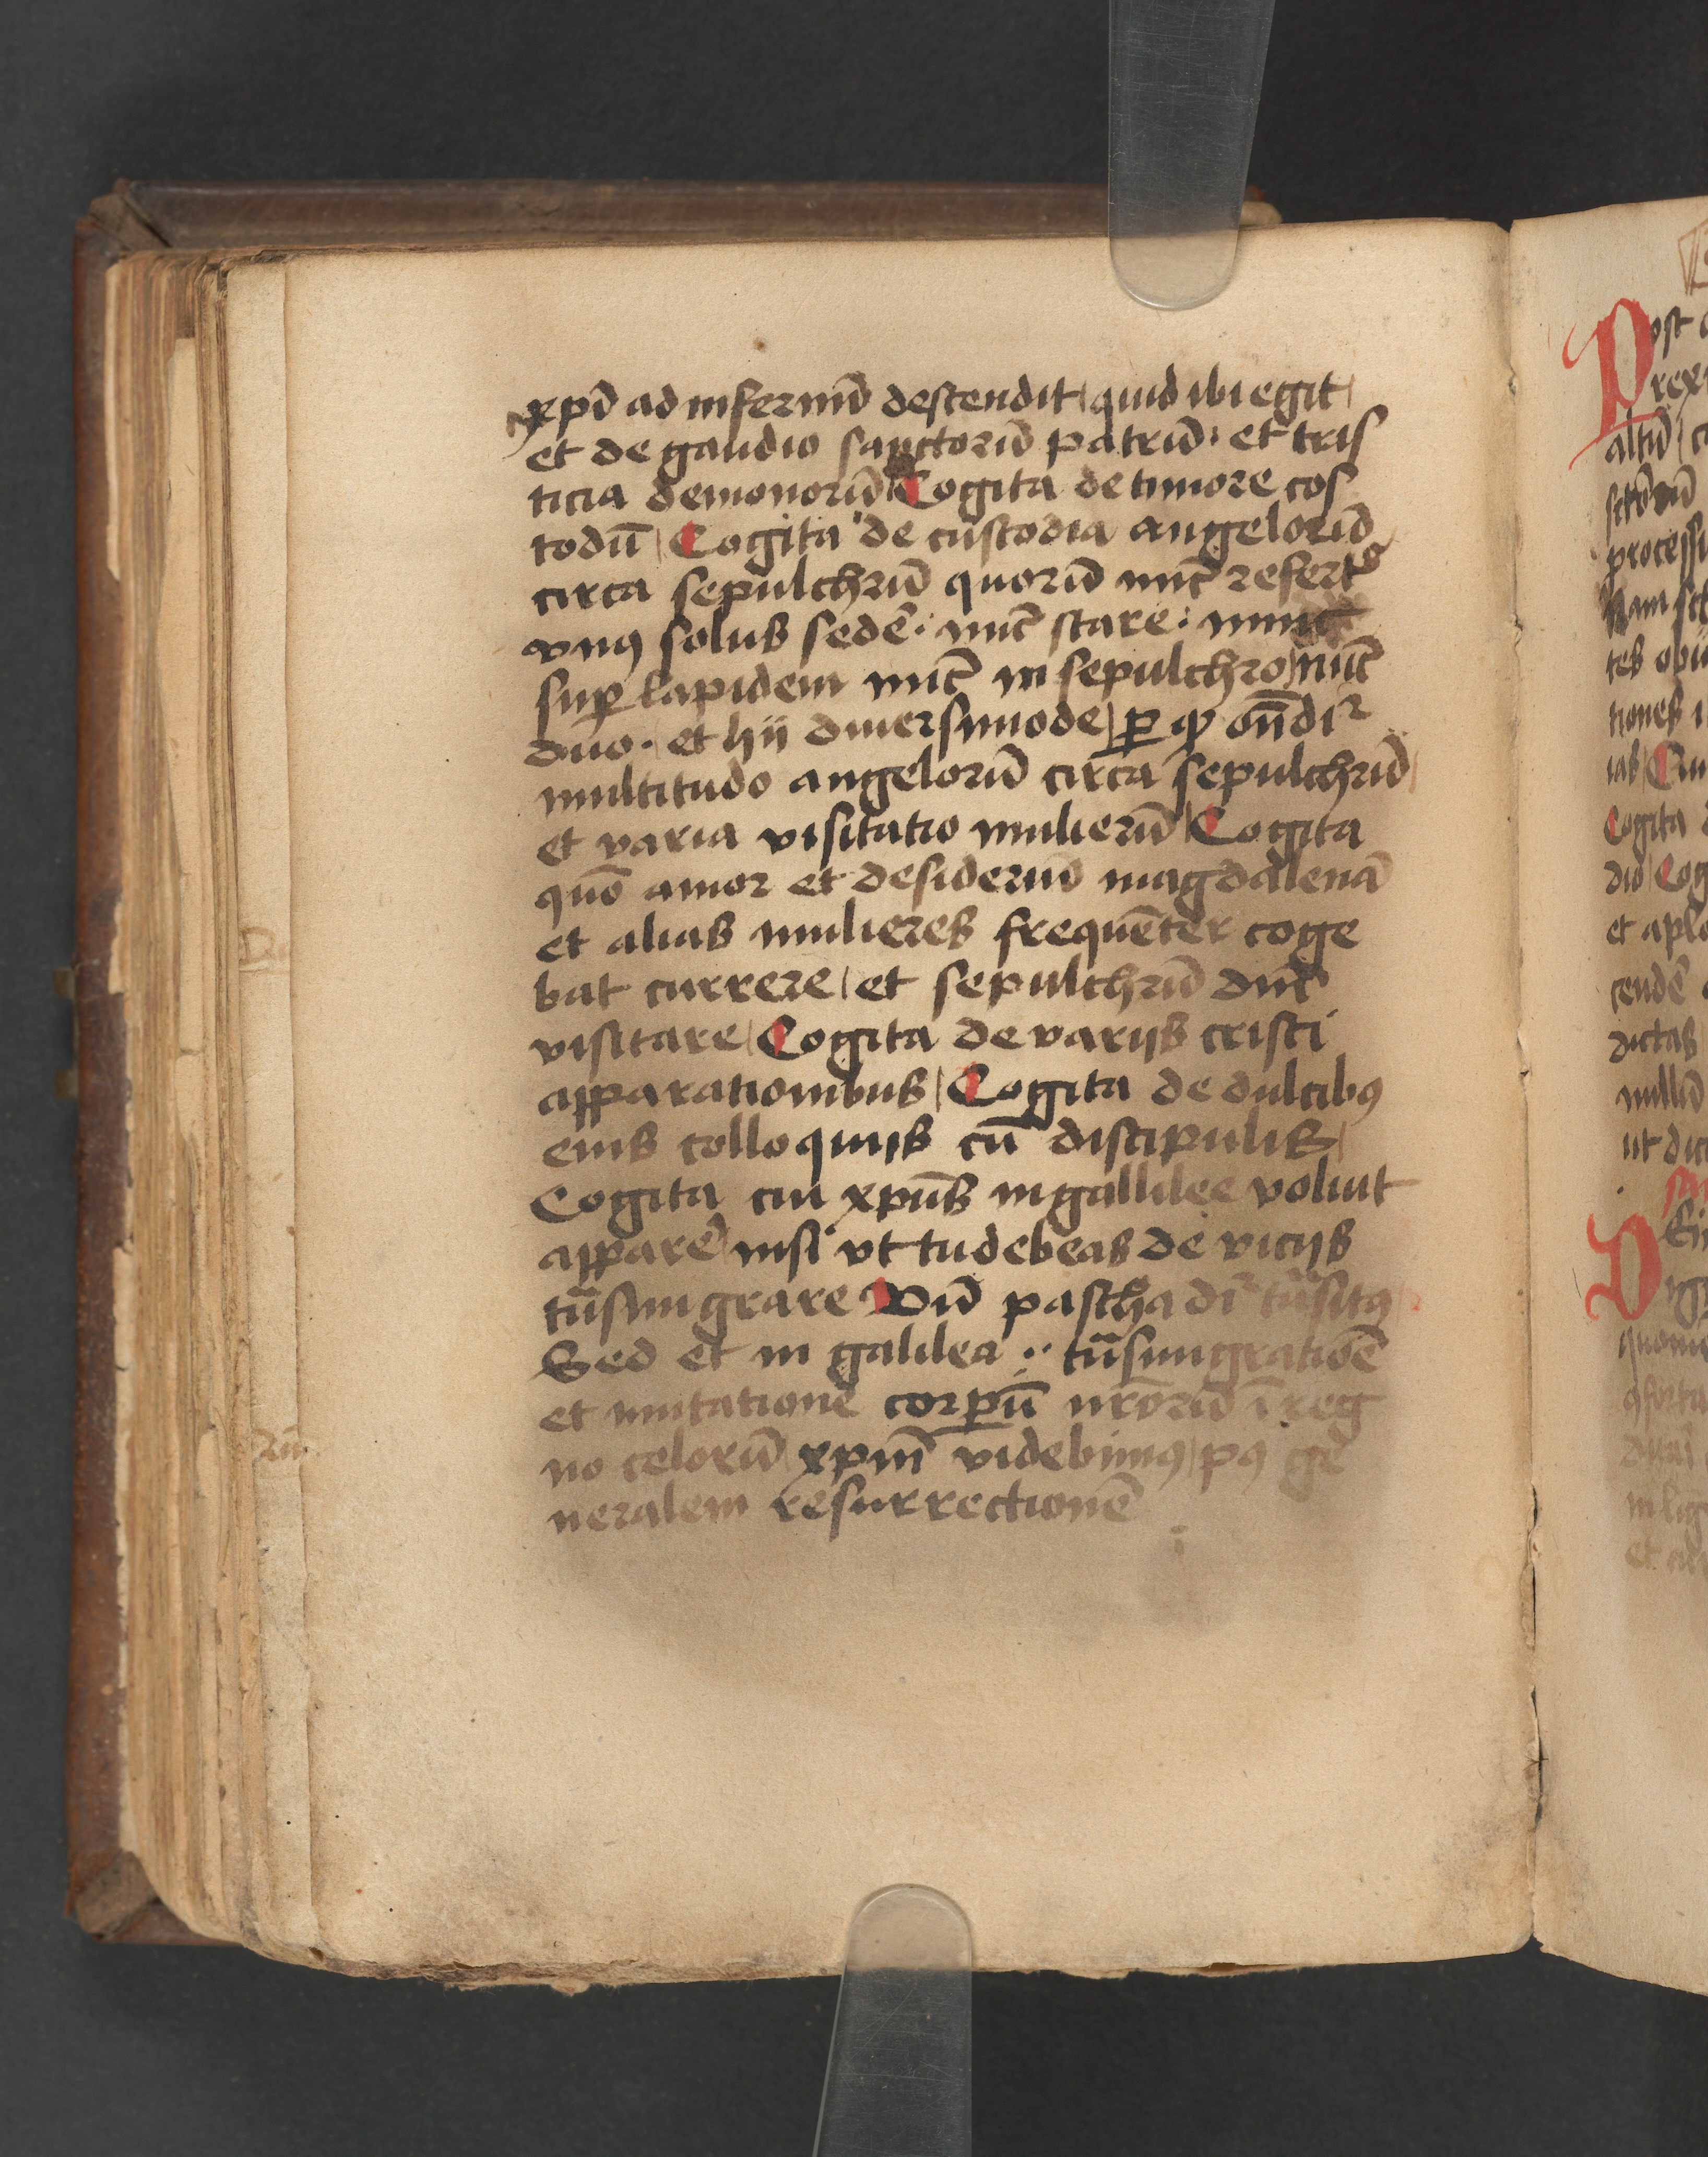 xpi̅ ad infernu̅ descendit / quid ibi egit /
et de gaudio sanctoru̅ patru̅ · et tris
ticia demonoru̅ / Cogita de timore cos
todu̅ / Cogita de custodia angeloru̅
circa sepulchru̅ quoru̅ nu̅c refertᵒ
vnꝰ solus sede̅ · nu̅c stare · nunc
suꝑ lapidem nu̅c in sepulchro / nu̅c
duo · et hij diuersimode / ꝑ ꝙ on̅dit᷑
multitudo angeloru̅ circa sepulchru̅ /
et varia visitatio mulieru̅ / Cogita
quo̅ amor et desideriu̅ magdalena̅
et alias mulieres freque̅ter coge
bat currere / et sepulchru̅ dn̅i
visitare / Cogita de varijs cristi
apparationibus / Cogita de dulcibꝰ
eius colloquijs cu̅ discipulis /
Cogita cur xpu̅s in gallilee voluit
appare̅ / nisi vt tu debeas de vicijs
tn̅smigrare Vn̅ pascha di᷑ tn̅sitꝰ /
Sed et in galilea ·· tn̅smigratio̅e
et mutatione corpu̅ nr̅oru̅ i̅ reg
no celoru̅ / xpm̅ videbimꝰ / pꝰ ge
neralem resurrectione̅
P
ost
rex
altu̅
processi
Nam
tes
tiones
ias
Cogita
dio / Cog
et aplo
cende̅
dictas
nullu̅
ut dic
D